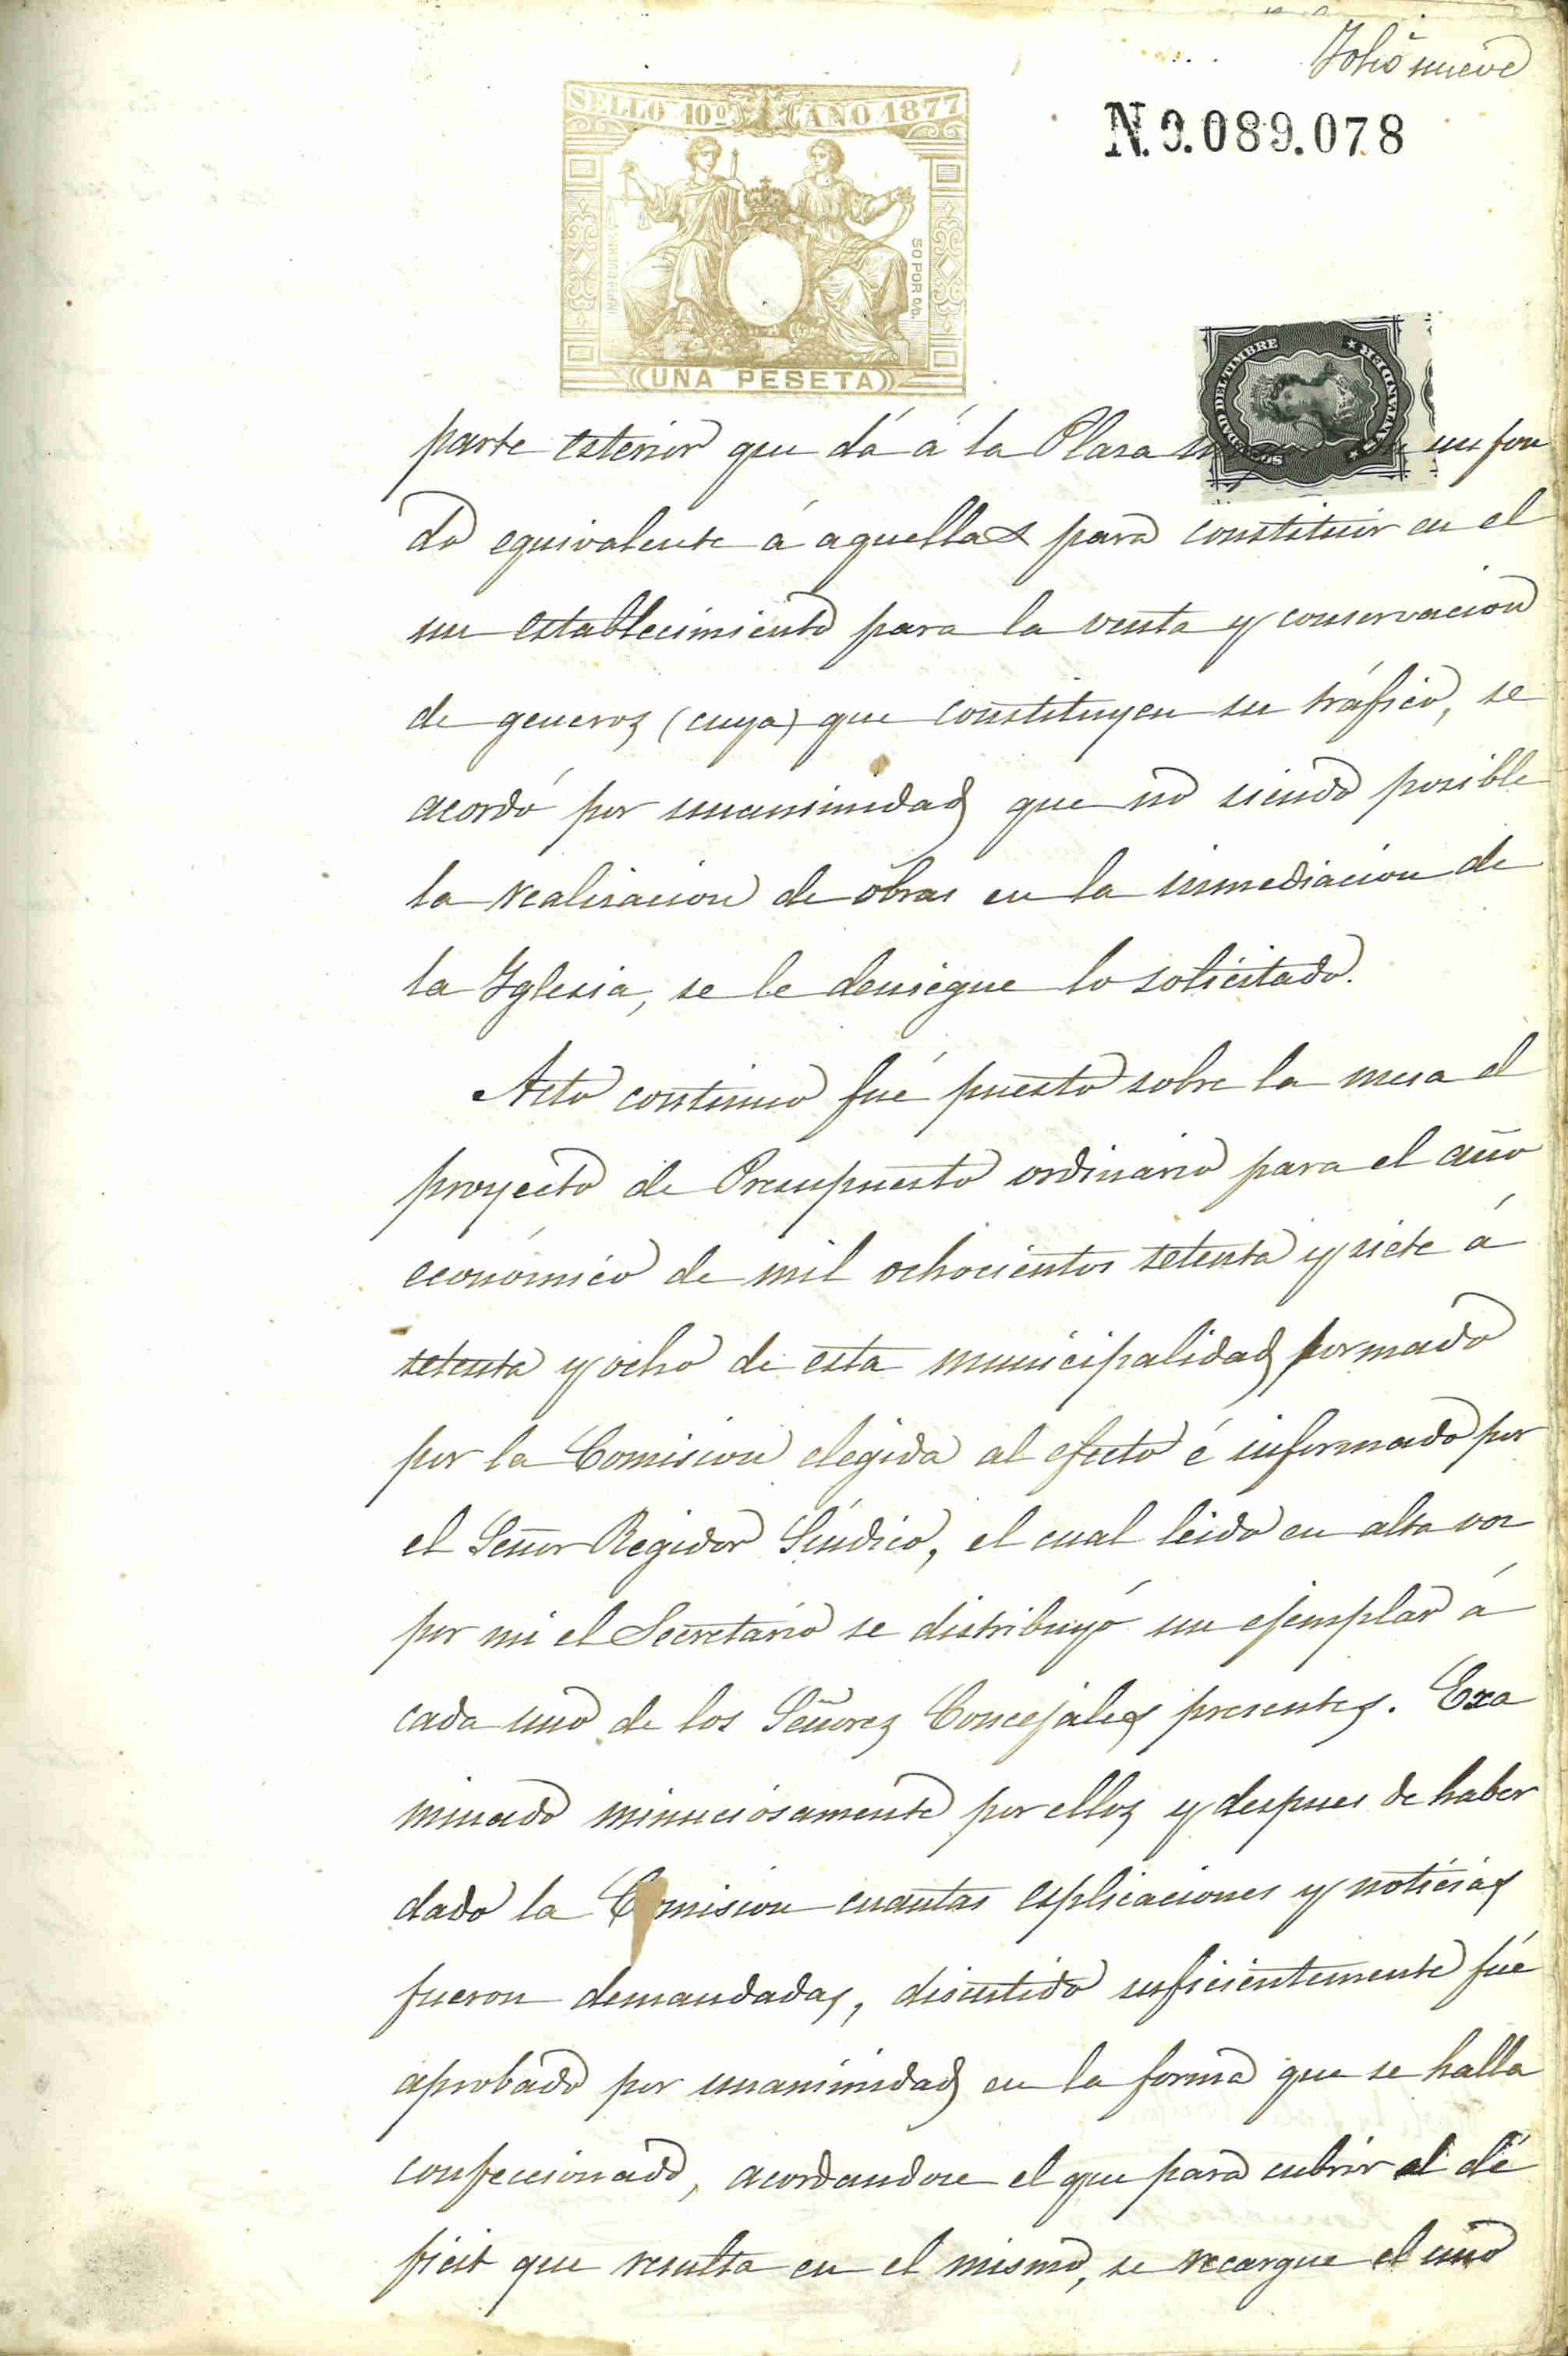 Folio nueve
SELLO 10º AÑO 1877
N. 0.089.078
50 POR 0/0.
UNA PESETA
SOCIEDAD DEL TIMBRE
parte esterior que dá á la Plaza un fon
do equivalente á aquellas para constituir en el
un establecimiento para la venta y conservacion
de generos (cuya) que constituyen su tráfico, se
acordó por unanimidad que no siendo posible
la realizacion de obras en la inmediacion de
la Yglesia, se le deniegue lo solicitado.
Acto continuo fué puesto sobre la mesa el
proyecto de Presupuesto ordinario para el año
económico de mil ochocientos setenta y siete á
setenta y ocho de esta municipalidad formado
por la Comision elegida al efecto é informado por
el Señor Regidor Síndico, el cual leido en alta voz
por mi el Secretario se distribuyó un ejemplar á
cada uno de los Señores Concejales presentes. Exa
minado minuciosamente por ellos y despues de haber
dado la Comision cuantas esplicaciones y noticias
fueron demandadas, discutido suficientemente fué
aprobado por unanimidad en la forma que se halla
confeccionado, acordandose el que para cubrir el dé
ficit que resulta en el mismo, se recargue el uno